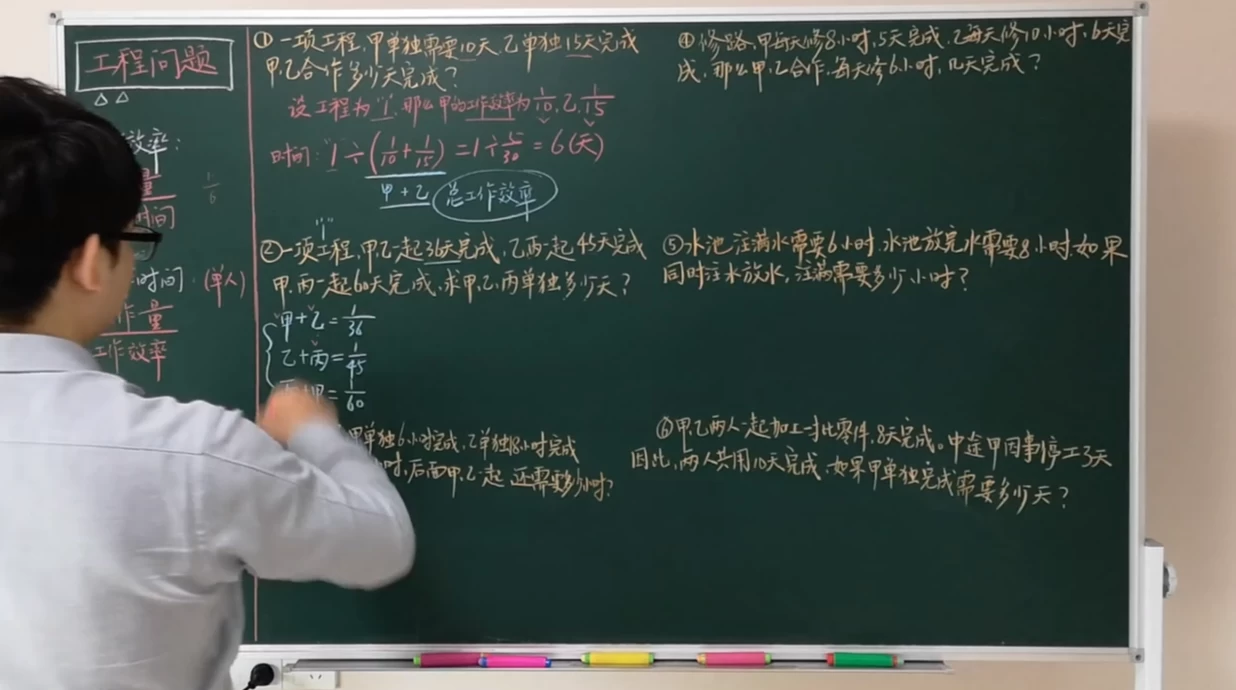 工程问题
效率:
量
时间
时间:(单人)
作量
工作效率
1/6
① 一项工程,甲单独需要10天,乙单独15天完成
甲,乙合作多少天完成?
设工程为"1",那么甲的工作效率为1/10,乙,1/15
时间:"1"÷(1/10+1/15)=1÷5/30=6(天)
甲+乙 总工作效率
"1"
②一项工程,甲乙一起36天完成,乙丙一起45天完成
甲,丙一起60天完成,求甲,乙,丙单独多少天?
甲+乙=1/36
乙+丙=1/45
甲=1/60
甲单独6小时完成,乙单独18小时完成
时,后面甲,乙一起,还需要多少小时?
④修路,甲每天修8小时,5天完成,乙每天修10小时,6天完
成,那么甲,乙合作,每天修6小时,几天完成?
⑤水池注满水需要6小时,水池放完水需要8小时.如果
同时注水放水,注满需要多少小时?
⑥甲,乙两人一起加工一批零件,8天完成。中途甲因事停工3天
因此,两人共用10天完成,如果甲单独完成需要多少天?